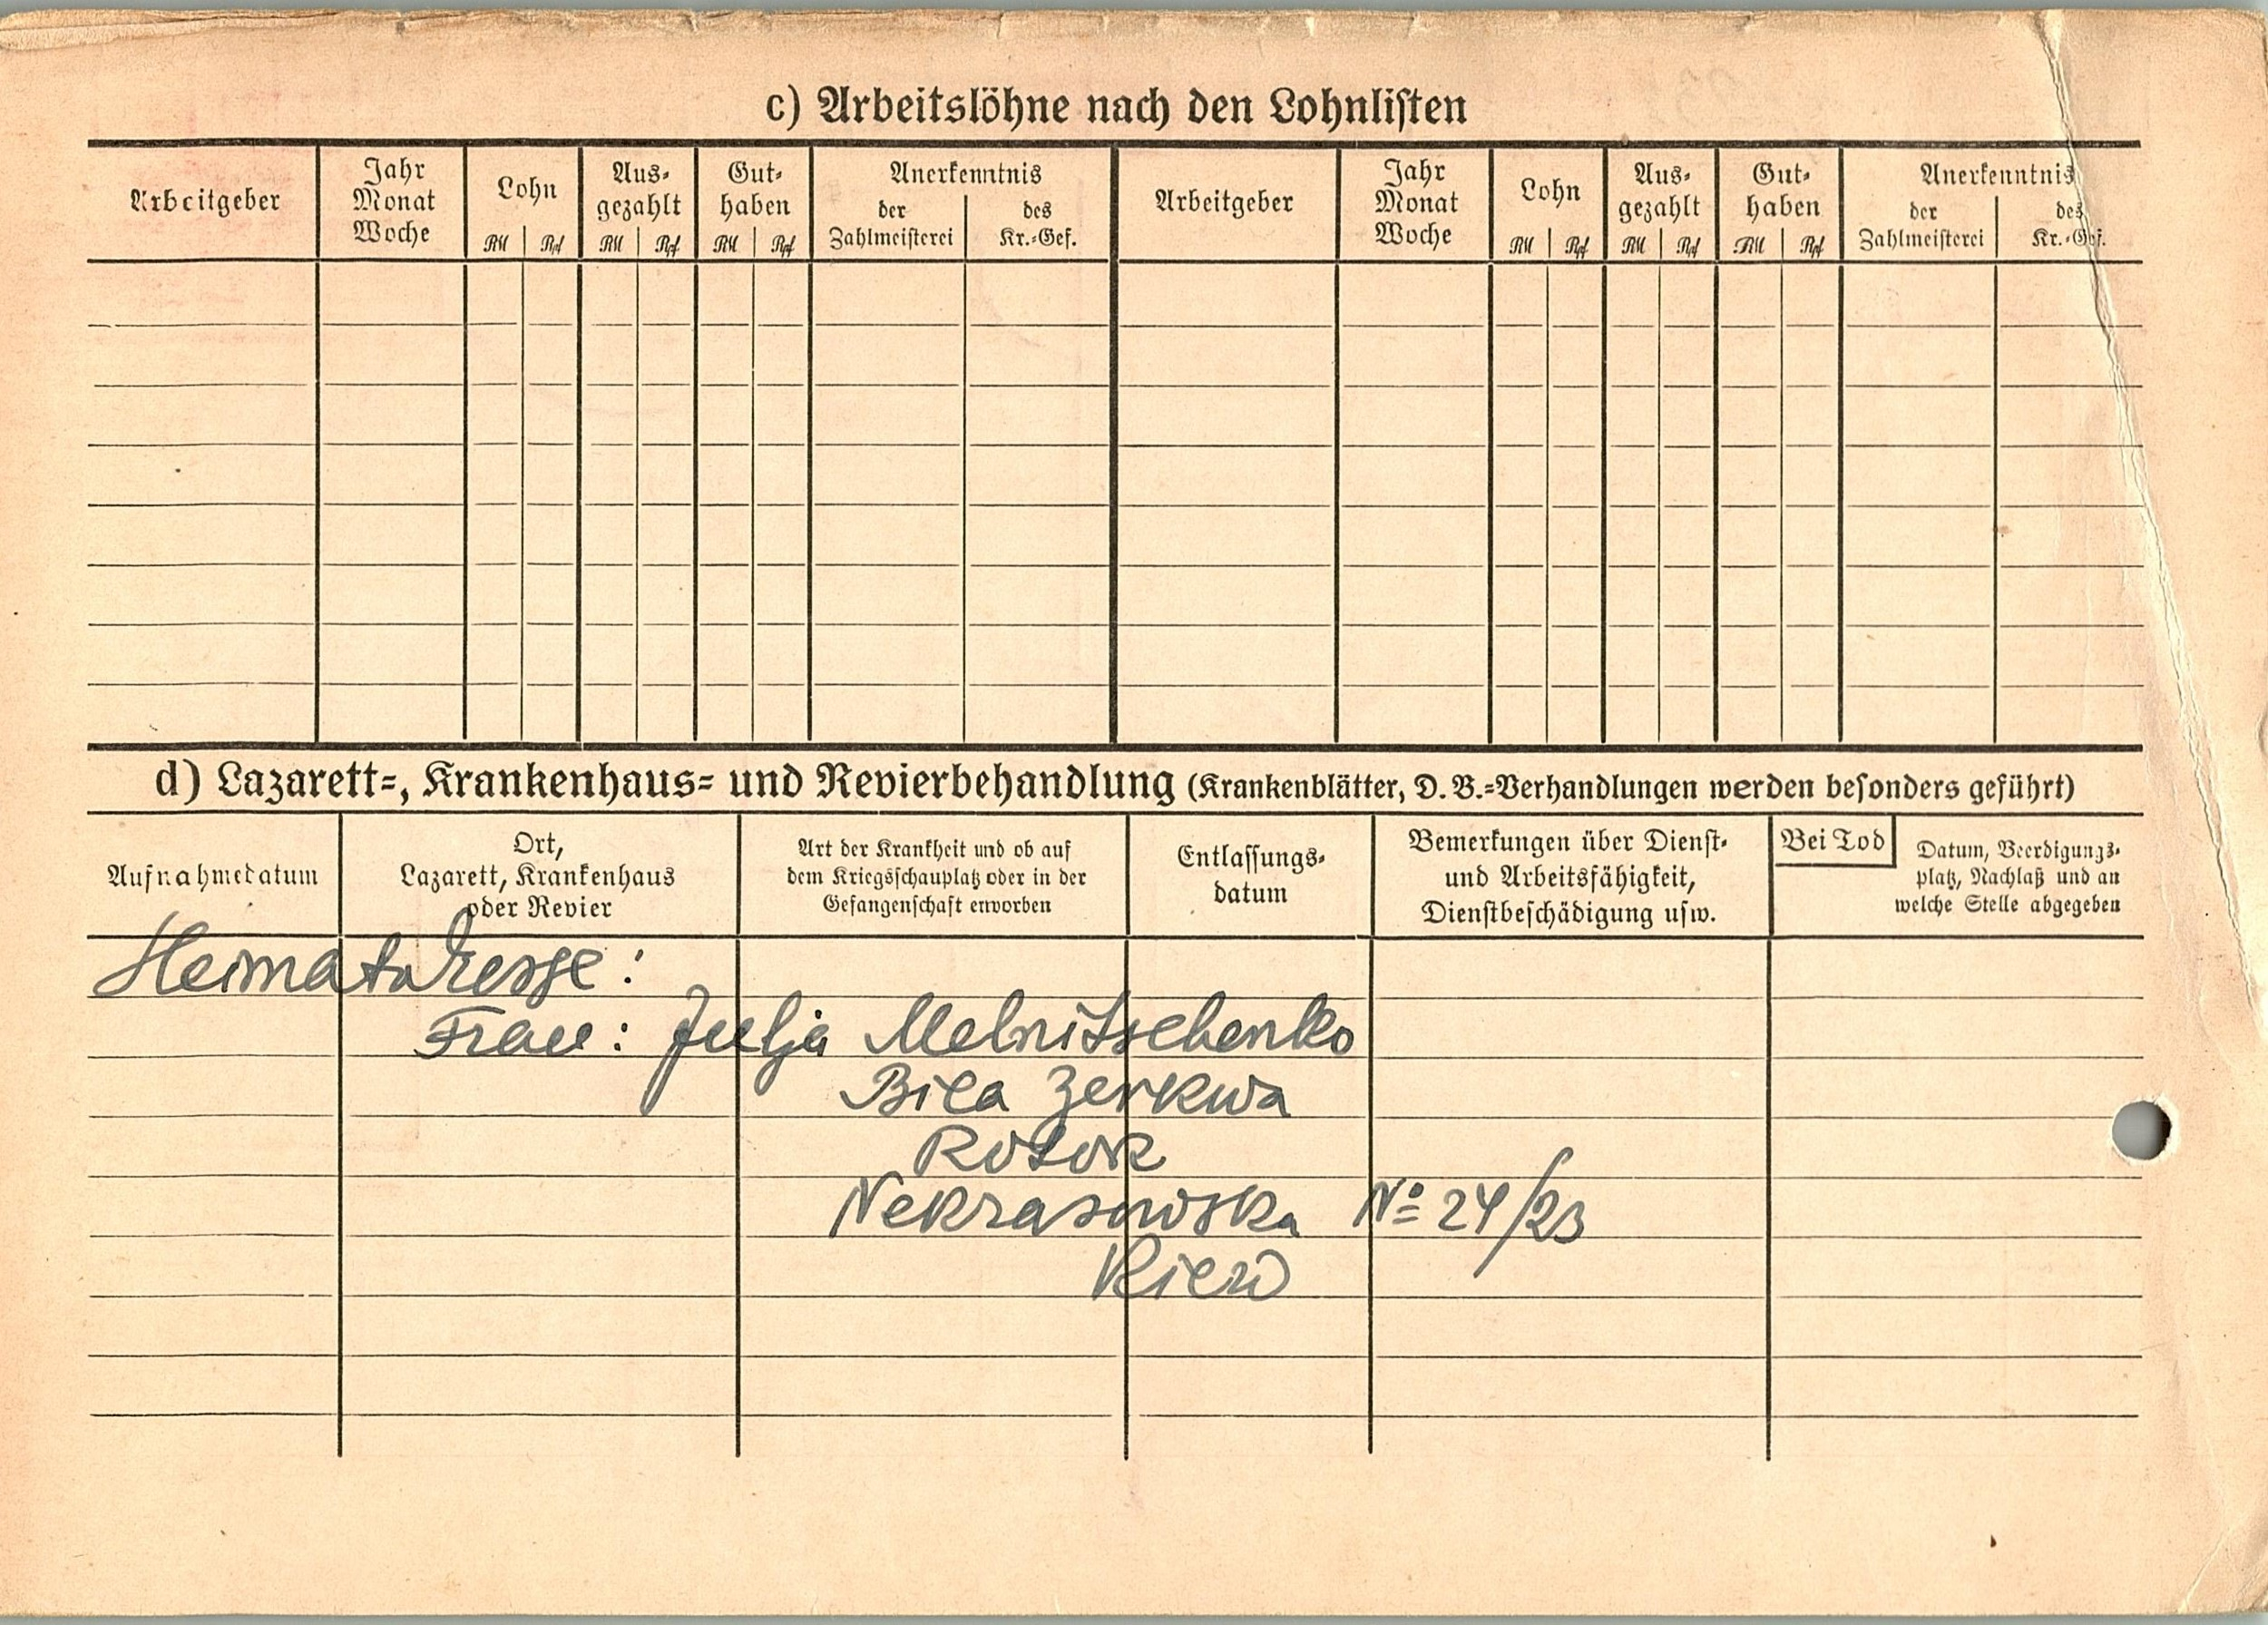 c) Arbeitslöhne nach den Lohnlisten
Arbeitgeber Jahr Monat Woche Lohn Aus- gezahlt Gut- haben Anerkenntnis Arbeitgeber Jahr Monat Woche Lohn Aus- gezahlt Gut- haben Anerkenntnis
RM Rpf RM Rpf RM Rpf der Zahlmeisterei des Kr.-Gef. RM Rpf RM Rpf RM Rpf der Zahlmeisterei des Kr.-Gef.
d) Lazarett-, Krankenhaus- und Revierbehandlung (Krankenblätter, D. B.-Verhandlungen werden besonders geführt)
Aufnahmedatum
Ort,
Lazarett, Krankenhaus
oder Revier
Art der Krankheit und ob auf
dem Kriegsschauplatz oder in der
Gefangenschaft erworben
Entlassungs-
datum
Bemerkungen über Dienst-
und Arbeitsfähigkeit,
Dienstbeschädigung usw.
Bei Tod
Datum, Beerdigungs-
platz, Nachlaß und an
welche Stelle abgegeben
Heimatadresse:
Frau: Julja Melnitschenko
Bila Zerkwa
Rotok
Nekrasowska № 24/23
Kiew